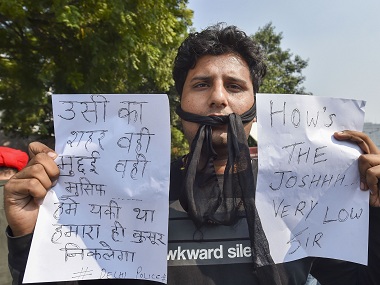 उसी का
शहर वही
मुद्दई वही
मुंसिफ
हमें यकीं था
हमारा ही कुसूर
निकलेगा
# DELHI POLICE
HOW's
THE
JOSHHH..
VERY LOW
SIR
wkward sile